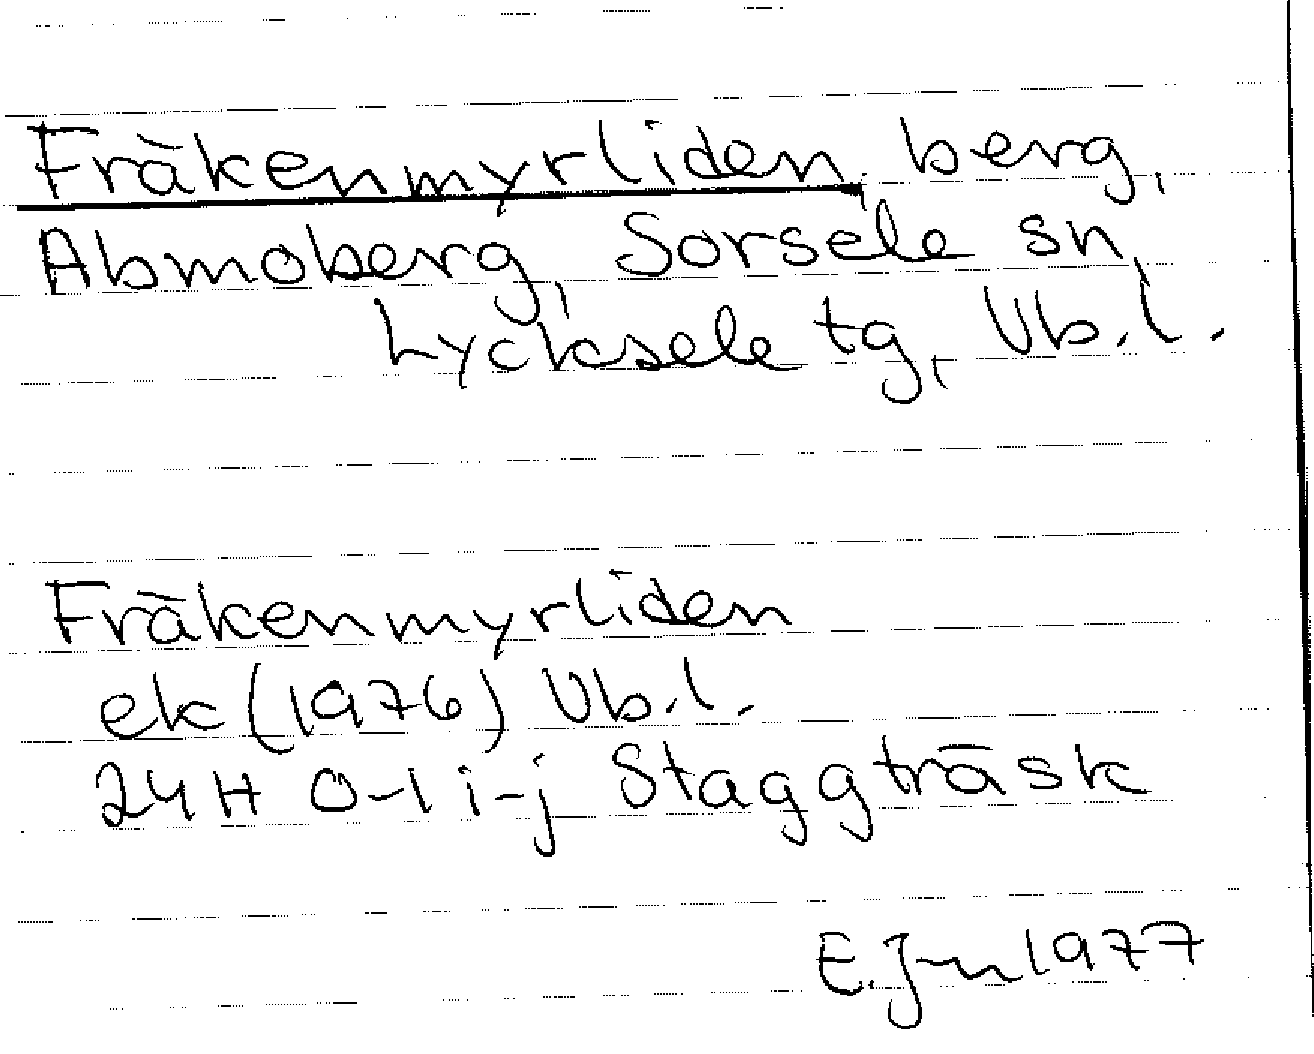 Fräkenmyrliden, berg,
Abmoberg, Sorsele sn,
Lycksele tg, Vb.l.
Fräkenmyrliden
ek (1976) Vb.l.
24H 0-1 i-j Staggträsk
E. 1977